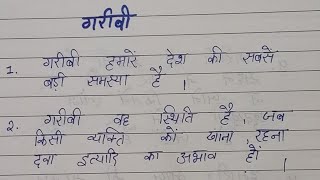 गरीबी
1. गरीबी हमारें देश की सबसें
बड़ी समस्या है ।
2. गरीबी वह स्थिति है, जब
किसी व्यक्ति कों खाना, रहना
दवा इत्यादि का अभाव हों ।